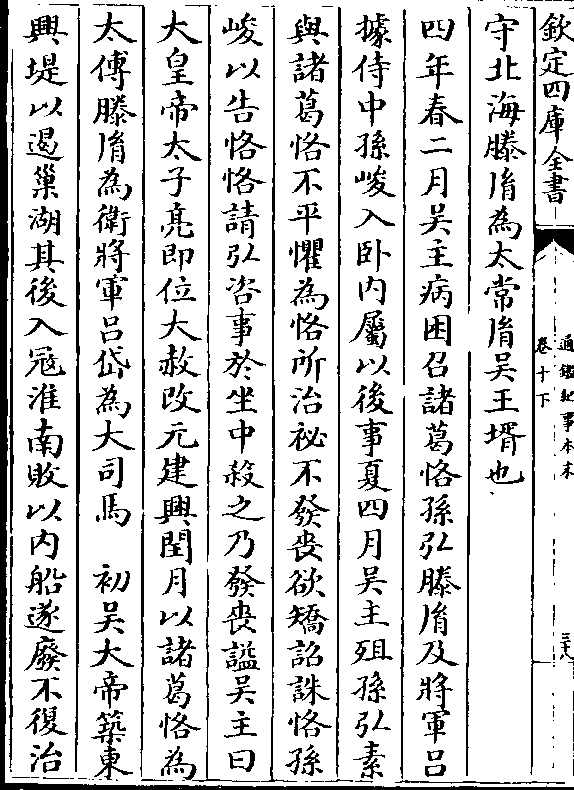 欽定四庫全書
通鑑紀事本末
卷十下
三十八
守北海滕胤為太常胤吳王壻也
四年春二月吳主病困召諸葛恪孫弘滕胤及將軍呂
據侍中孫峻入卧内屬以後事夏四月吳主殂孫弘素
與諸葛恪不平懼為恪所治祕不發喪欲矯詔誅恪孫
峻以告恪恪請弘咨事於坐中殺之乃發喪諡吳主曰
大皇帝太子亮即位大赦改元建興閏月以諸葛恪為
太傅滕胤為衛將軍呂岱為大司馬　初吳大帝築東
興堤以遏巢湖其後入寇淮南敗以内船遂廢不復治